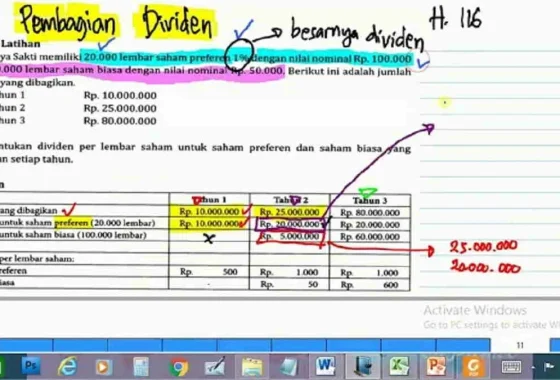 Pembagian Dividen
besarnya dividen
H. 116
Latihan
ya Sakti memiliki 20.000 lembar saham preferen 1% dengan nilai nominal Rp. 100.000
0.000 lembar saham biasa dengan nilai nominal Rp. 50.000. Berikut ini adalah jumlah
yang dibagikan.
hun 1 Rp. 10.000.000
hun 2 Rp. 25.000.000
hun 3 Rp. 80.000.000
ntukan dividen per lembar saham untuk saham preferen dan saham biasa yang
an setiap tahun.
Tahun 1 Tahun 2 Tahun 3
ang dibagikan Rp. 10.000.000 Rp. 25.000.000 Rp. 80.000.000
untuk saham preferen (20.000 lembar) Rp. 10.000.000 Rp. 20.000.000 Rp. 20.000.000
untuk saham biasa (100.000 lembar) x Rp. 5.000.000 Rp. 60.000.000
25.000.000
20.000.000
per lembar saham:
referen Rp. 500 Rp. 1.000 Rp. 1.000
iasa Rp. 50 Rp. 600
Activate Windows
Go to PC settings to activate Wi
11